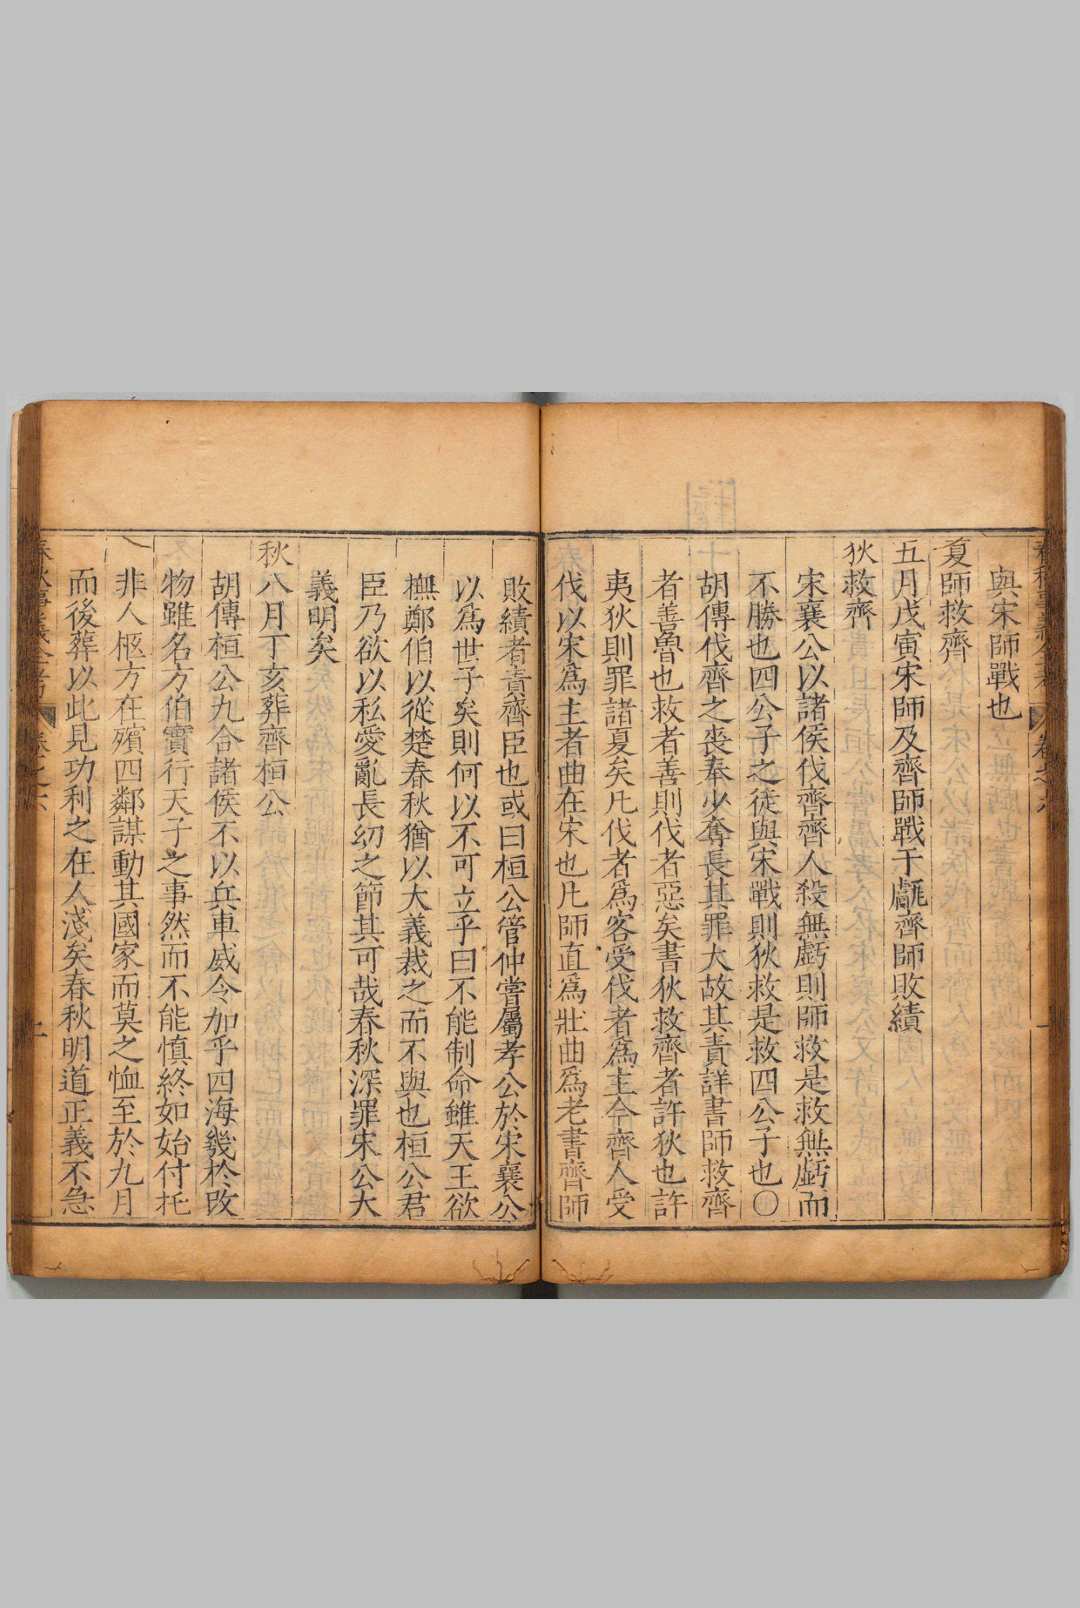 與宋師戰也
夏師救齊
五月戊寅宋師及齊師戰于甗齊師敗績
狄救齊
宋襄公以諸侯伐齊齊人殺無虧則師救是救無虧而
不勝也四公子之徒與宋戰則狄救是救四公子也〇
胡傳伐齊之喪奉少奪長其罪大故其責詳書師救齊
者善魯也救者善則伐者惡矣書狄救齊者許狄也許
夷狄則罪諸夏矣凡伐者爲客受伐者爲主今齊人受
伐以宋爲主者曲在宋也凡師直爲壯曲爲老書齊師
敗績者責齊臣也或曰桓公管仲嘗屬孝公於宋襄公
以爲世子矣則何以不可立乎曰不能制命雖天王欲
橅鄭伯以從楚春秋猶以大義裁之而不與也桓公君
臣乃欲以私愛亂長幼之節其可哉春秋深罪宋公大
義明矣
秋八月丁亥葬齊桓公
胡傳桓公九合諸侯不以兵車威令加乎四海幾於改
物雖名方伯實行天子之事然而不能慎終如始付托
非人柩方在殯四鄰謀動其國家而莫之恤至於九月
而後葬以此見功利之在人淺矣春秋明道正義不急